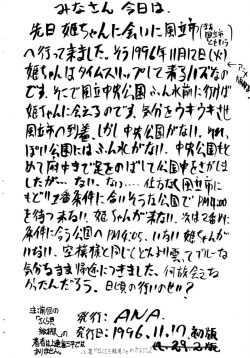 みなさん 今日は。
先日 姫ちゃんに会いに国立市
へ行って来ました。そう1996年11月12日(火)
姫ちゃんはタイムスリップして来るハズなの
です。そこで国立中央公園ふん水前に行けば
姫ちゃんに会えるのです。気分をウキウキさせ
国立市へ到着、しかし中央公園がない。それ
っぽい公園にはふん水がない。中央公園もと
めて府中まで足をのばして公園中をさがしま
したが…ない。なっ…仕方なく国立市に
もどり1番条件に合いそうな公園でPM4:00
を待つ
来ない。姫ちゃんが来ない。次は2番めに
条件に合う公園へPM4:05、いない 姫ちゃんが
いない。空模様と同じくどんより曇ってブルーな
気分るまま帰途につきました。何故会えな
かったんだろう。日頃の行いのせい?
発行:ANA.
発行日:1996.11.17.初版
注:前回の